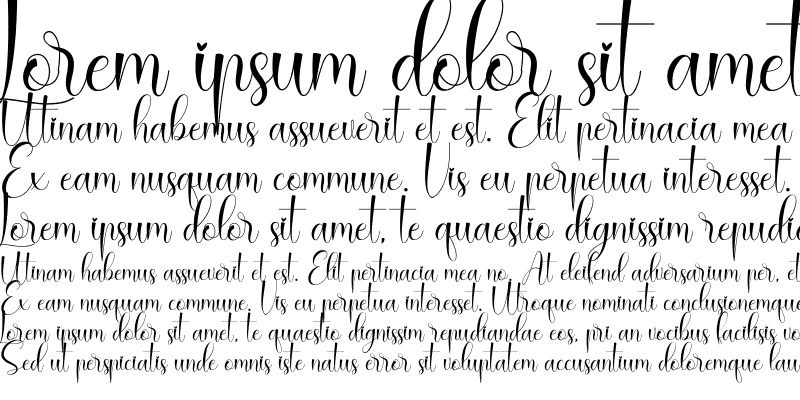 Lorem ipsum dolor sit amet
Utinam habemus assueverit et est. Elit pertinacia mea
Ex eam nusquam commune. Vis eu perpetua interesset.
Lorem ipsum dolor sit amet, te quaestio dignissim repudia
Utinam habemus assueverit et est. Elit pertinacia mea no. At eleifend adversarium per, et
Ex eam nusquam commune. Vis eu perpetua interesset. Utroque nominati conclusionemque
Lorem ipsum dolor sit amet, te quaestio dignissim repudiandae eos, pri an vocibus facilisis vo
Sed ut perspiciatis unde omnis iste natus error sit voluptatem accusantium doloremque lau